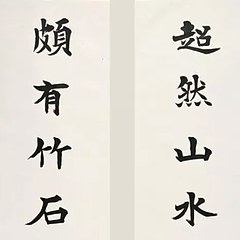 超然山水
頗有竹石